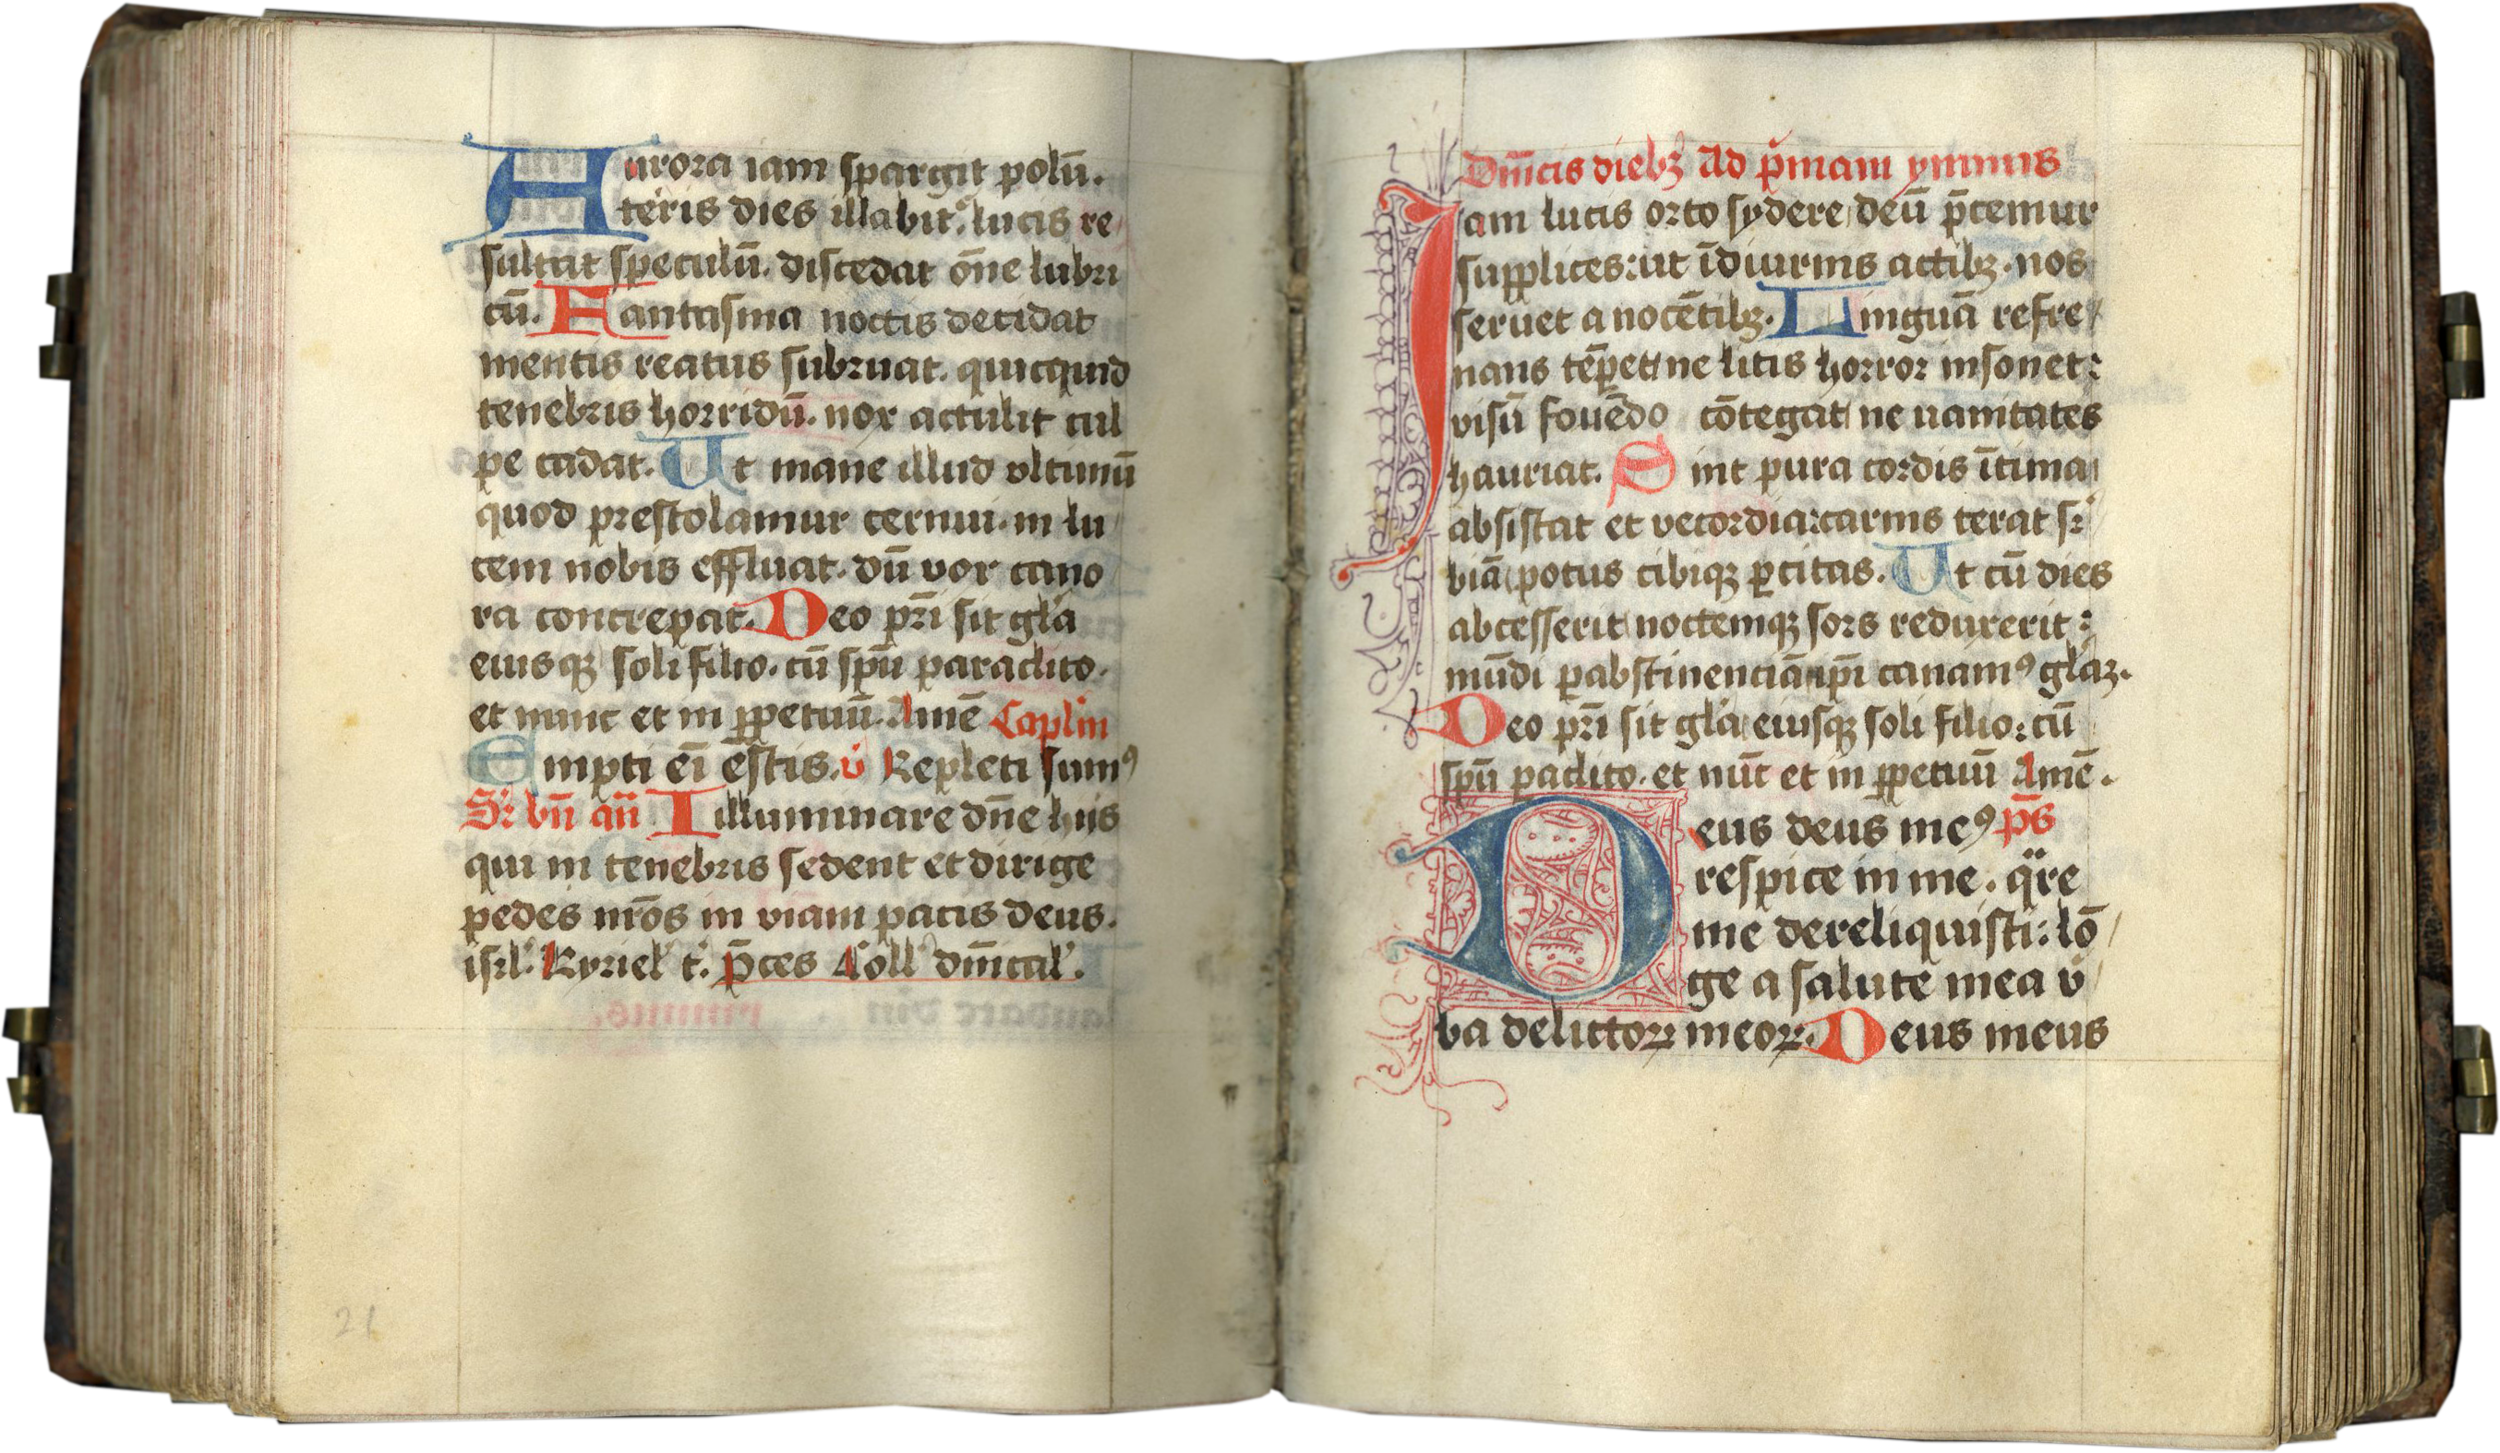 Aurora iam spargit polū.
teris dies illabit᷒. lucis re
sultat speculū. discedat o̅ne lubri
cū. Fantasma noctis decidat
mentis reatus subruat. quicquid
tenebris horridū. nox attulit cul
pe cadat. Ut mane illud vltimū
quod prestolamur cernui. in lu
cem nobis effluat. dū vox cano
ra concrepat. Deo pr̄i sit gl'a
eiusqꝫ soli filio. cū sp̄u paraclito.
et nunc et in ꝑpetuū. Amē Caplm
Empti ei̅ e̅stis. v̇ Repleti sumꝰ
Sr̄ bn̄ an̄ Illuminare dn̄e hijs
qui in tenebris sedent et dirige
pedes nr̄os in viam pacis deus.
isrl'. Kyriel' t'. p̄ces Coll' dn̄ical'.
21
Dn̄icis diebꝫ Ad p̄mam ympnus
Iam lucis orto sydere deū p̄cemur
supplices: ut īdiurnis actibꝫ. nos
seruet a nocētibꝫ. Linguā refre
nans tēperet ne litis horror insonet:
visū fouēdo cōtegat ne uanitates
hauriat. Sint pura cordis ītima
absistat et vecordia: carnis terat sr̄
biā potus cibiqꝫ ꝑcitas. Ut cū dies
abcesserit noctemqꝫ sors reduxerit:
mūdi ꝑ abstinenciā ip̄i canamꝰ gl'aꝫ.
Deo pr̄i sit gl'a eiusqꝫ soli filio: cū
sp̄u paclito. et nūc et in ꝑpetuū Amē.
Deus deus meꝰ p̄s
respice in me. q̈re
me dereliquisti: lō
ge a salute mea v̇
ba delictoꝝ meoꝝ. Deus meus